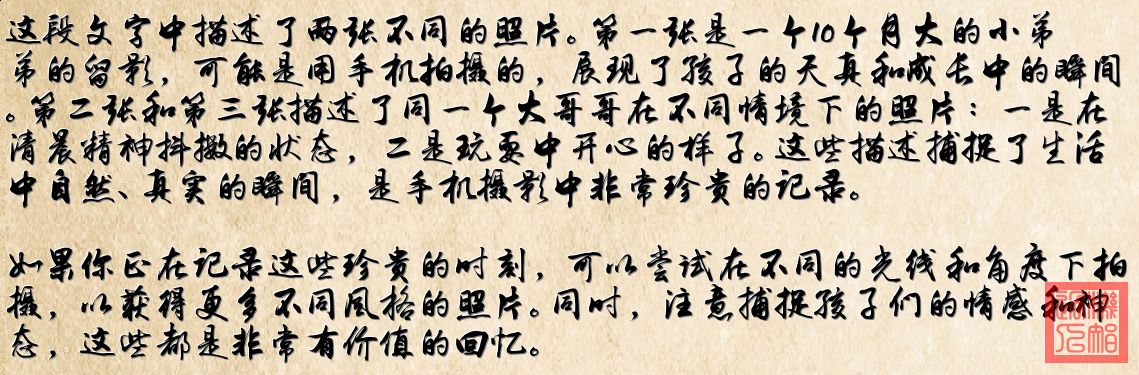 这段文字中描述了两张不同的照片。第一张是一个10个月大的小弟
弟的留影，可能是用手机拍摄的，展现了孩子的天真和成长中的瞬间
。第二张和第三张描述了同一个大哥哥在不同情境下的照片：一是在
清晨精神抖擞的状态，二是玩耍中开心的样子。这些描述捕捉了生活
中自然、真实的瞬间，是手机摄影中非常珍贵的记录。
如果你正在记录这些珍贵的时刻，可以尝试在不同的光线和角度下拍
摄，以获得更多不同风格的照片。同时，注意捕捉孩子们的情感和神
态，这些都是非常有价值的回忆。